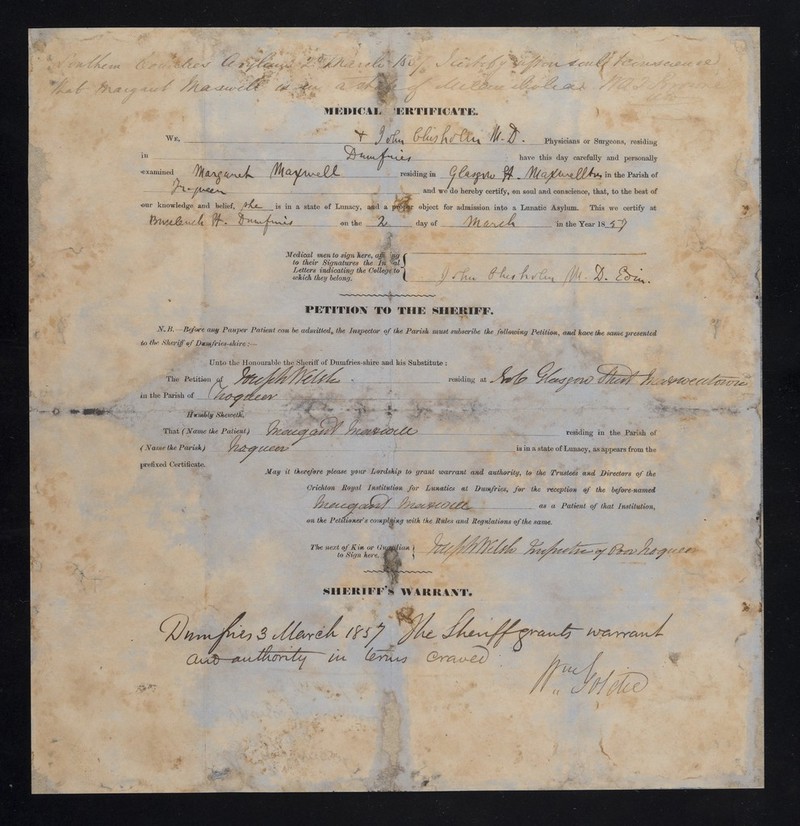 Southern Counties Asylum 2d March 1857 I certify upon soul & conscience
that Margaret Maxwell is in a state of
MEDICAL CERTIFICATE.
WE, + John Chisholm M.D. Physicians or Surgeons, residing
in Dumfries have this day carefully and personally
examined Margaret Maxwell residing in Glasgow St. Maxwellton in the Parish of
Troqueer and we do hereby certify, on soul and conscience, that, to the best of
our knowledge and belief, she is in a state of Lunacy, and a proper object for admission into a Lunatic Asylum. This we certify at
Buccleuch St. Dumfries on the 2 day of March in the Year 1857
Medical men to sign here, adding
to their Signatures the Initial
Letters indicating the College to
which they belong.
John Chisholm M.D. Edin.
PETITION TO THE SHERIFF.
N. B.—Before any Pauper Patient can be admitted, the Inspector of the Parish must subscribe the following Petition, and have the same presented
to the Sheriff of Dumfries-shire:—
Unto the Honourable the Sheriff of Dumfries-shire and his Substitute:
The Petition of Joseph Welsh residing at Glasgow Street Maxwelltown
in the Parish of Troqueer
Humbly Sheweth,
That (Name the Patient) Margaret Maxwell residing in the Parish of
(Name the Parish) Troqueer is in a state of Lunacy, as appears from the
prefixed Certificate.
May it therefore please your Lordship to grant warrant and authority, to the Trustees and Directors of the
Crichton Royal Institution for Lunatics at Dumfries, for the reception of the before-named
Margaret Maxwell as a Patient of that Institution,
on the Petitioner's complying with the Rules and Regulations of the same.
The next of Kin or Guardian
to Sign here.
Joseph Welsh Inspector of Poor Troqueer
SHERIFF'S WARRANT.
Dumfries 3 March 1857 The Sheriff grants warrant
and authority in terms craved
Wm Goldie